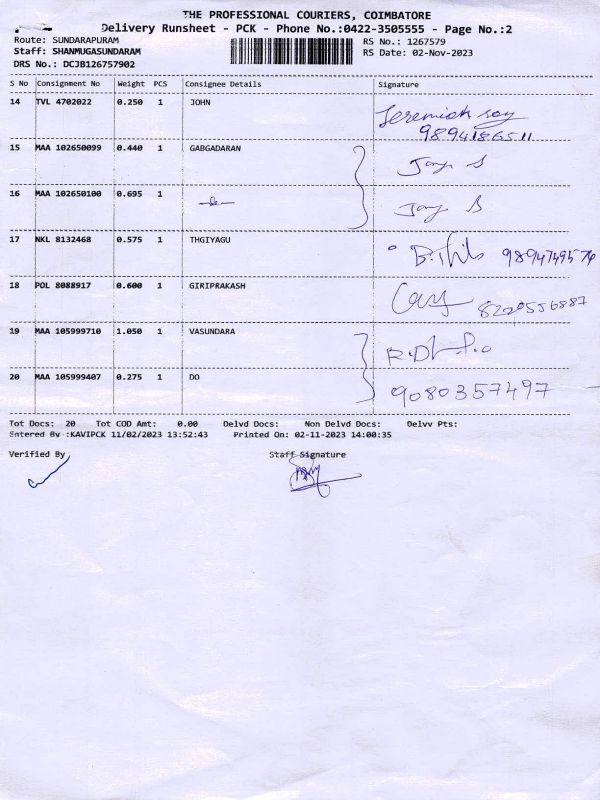 THE PROFESSIONAL COURIERS, COIMBATORE
Delivery Runsheet - PCK - Phone No.:0422-3505555 - Page No.:2
Route: SUNDARAPURAM RS No.: 1267579
Staff: SHANMUGASUNDARAM RS Date: 02-Nov-2023
DRS No.: DCJB126757902
S No Consignment No Weight PCS Consignee Details Signature
14 TVL 4702022 0.250 1 JOHN
9894186511
15 MAA 102650099 0.440 1 GABGADARAN
16 MAA 102650100 0.695 1
17 NKL 8132468 0.575 1 THGIYAGU
18 POL 8088917 0.600 1 GIRIPRAKASH
19 MAA 105999710 1.050 1 VASUNDARA
20 MAA 105999407 0.275 1 DO 9080357497
Tot Docs: 20 Tot COD Amt: 0.00 Delvd Docs: Non Delvd Docs: Delvv Pts:
Entered By :KAVIPCK 11/02/2023 13:52:43 Printed On: 02-11-2023 14:00:35
Verified By Staff Signature